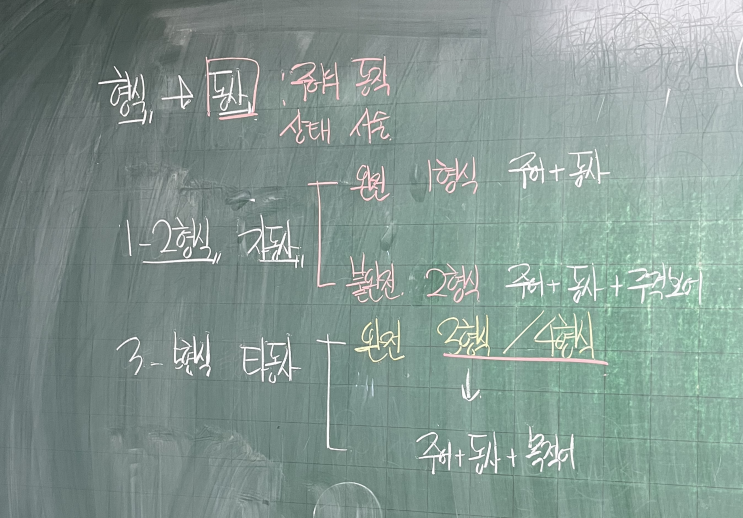 형식 → 동사 : 주어의 동작
상태 서술
완전 1형식 주어 + 동사
1-2형식 자동사
불완전 2형식 주어 + 동사 + 주격보어
완전 3형식 / 4형식
3-5형식 타동사
↓
주어 + 동사 + 목적어